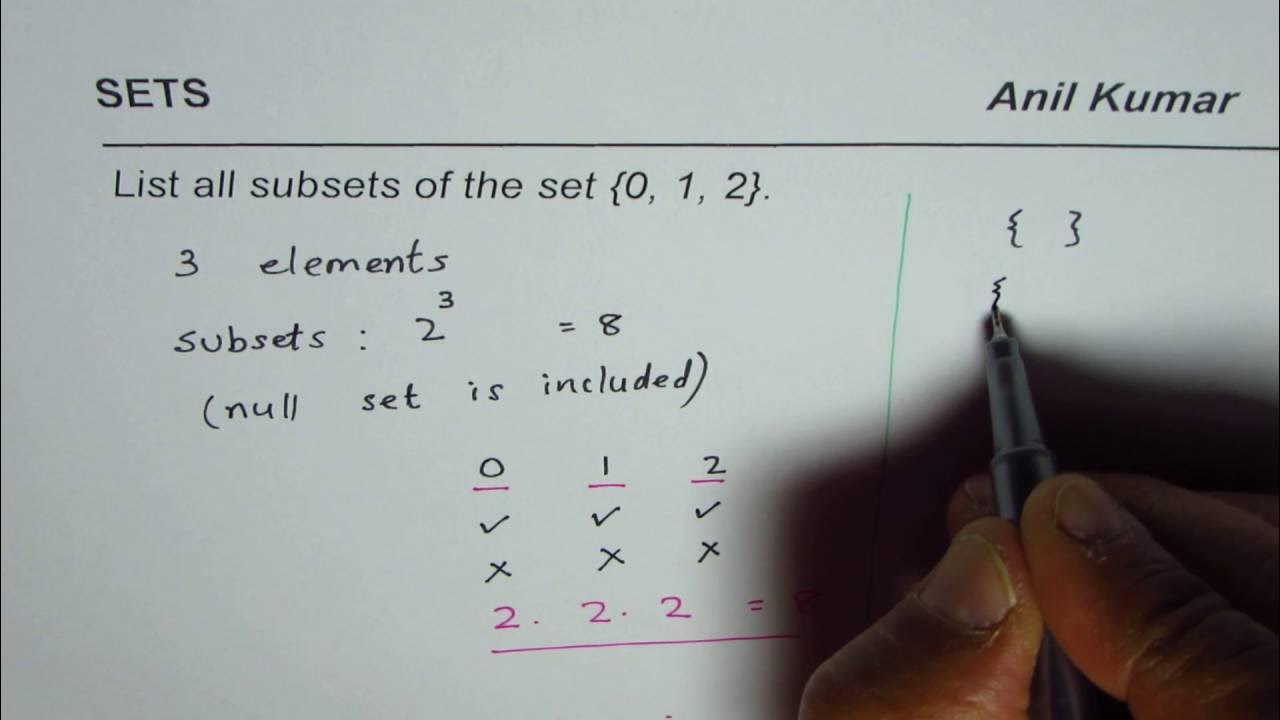 SETS
Anil Kumar
List all subsets of the set {0, 1, 2}.
3 elements
subsets : 2³ = 8
(null set is included)
0 1 2
✓ ✓ ✓
× × ×
2 . 2 . 2 = 8
{ }
{